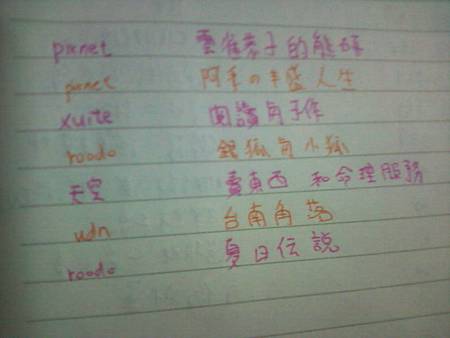 pixnet 雲雀恭子的熊窩
pixnet 阿毛の丰盛人生
xuite 閱讀寫子作
roodo 銀狐與小狐
天空 賣東西 和命理服務
udn 台南角落
roodo 夏日伝説